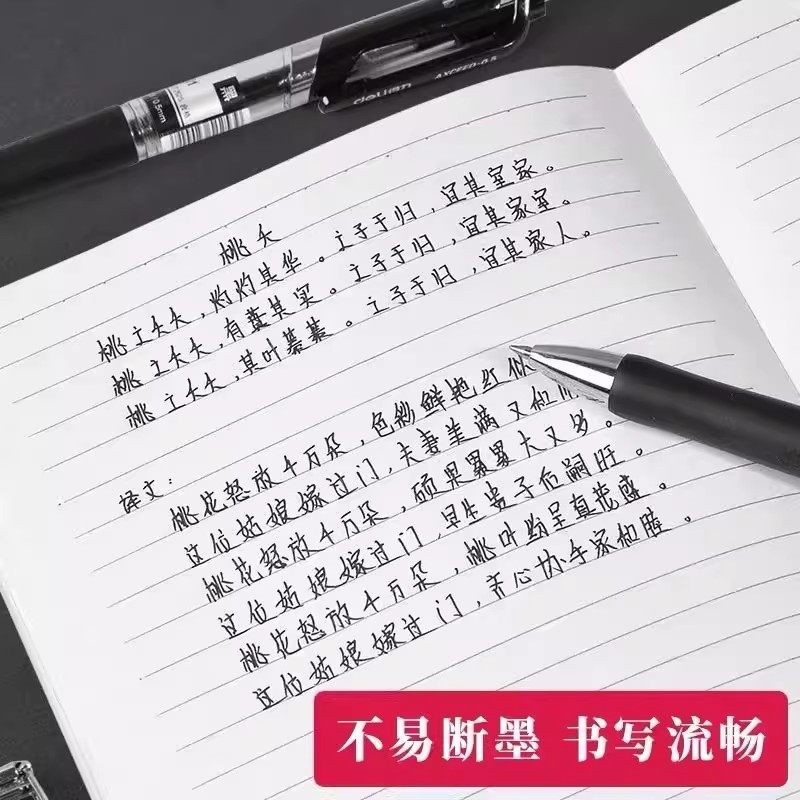 deli
AXCEED-0.5
黑
0.5mm
桃夭
桃之夭夭，灼灼其华。之子于归，宜其室家。
桃之夭夭，有蕡其实。之子于归，宜其家室。
桃之夭夭，其叶蓁蓁。之子于归，宜其家人。
译文：
桃花怒放千万朵，色彩鲜艳红似
这位姑娘嫁过门，夫妻美满又和
桃花怒放千万朵，硕果累累大又多。
这位姑娘嫁过门，早生贵子后嗣旺。
桃花怒放千万朵，桃叶纷呈真花盛。
这位姑娘嫁过门，齐心协手家和睦。
不易断墨 书写流畅